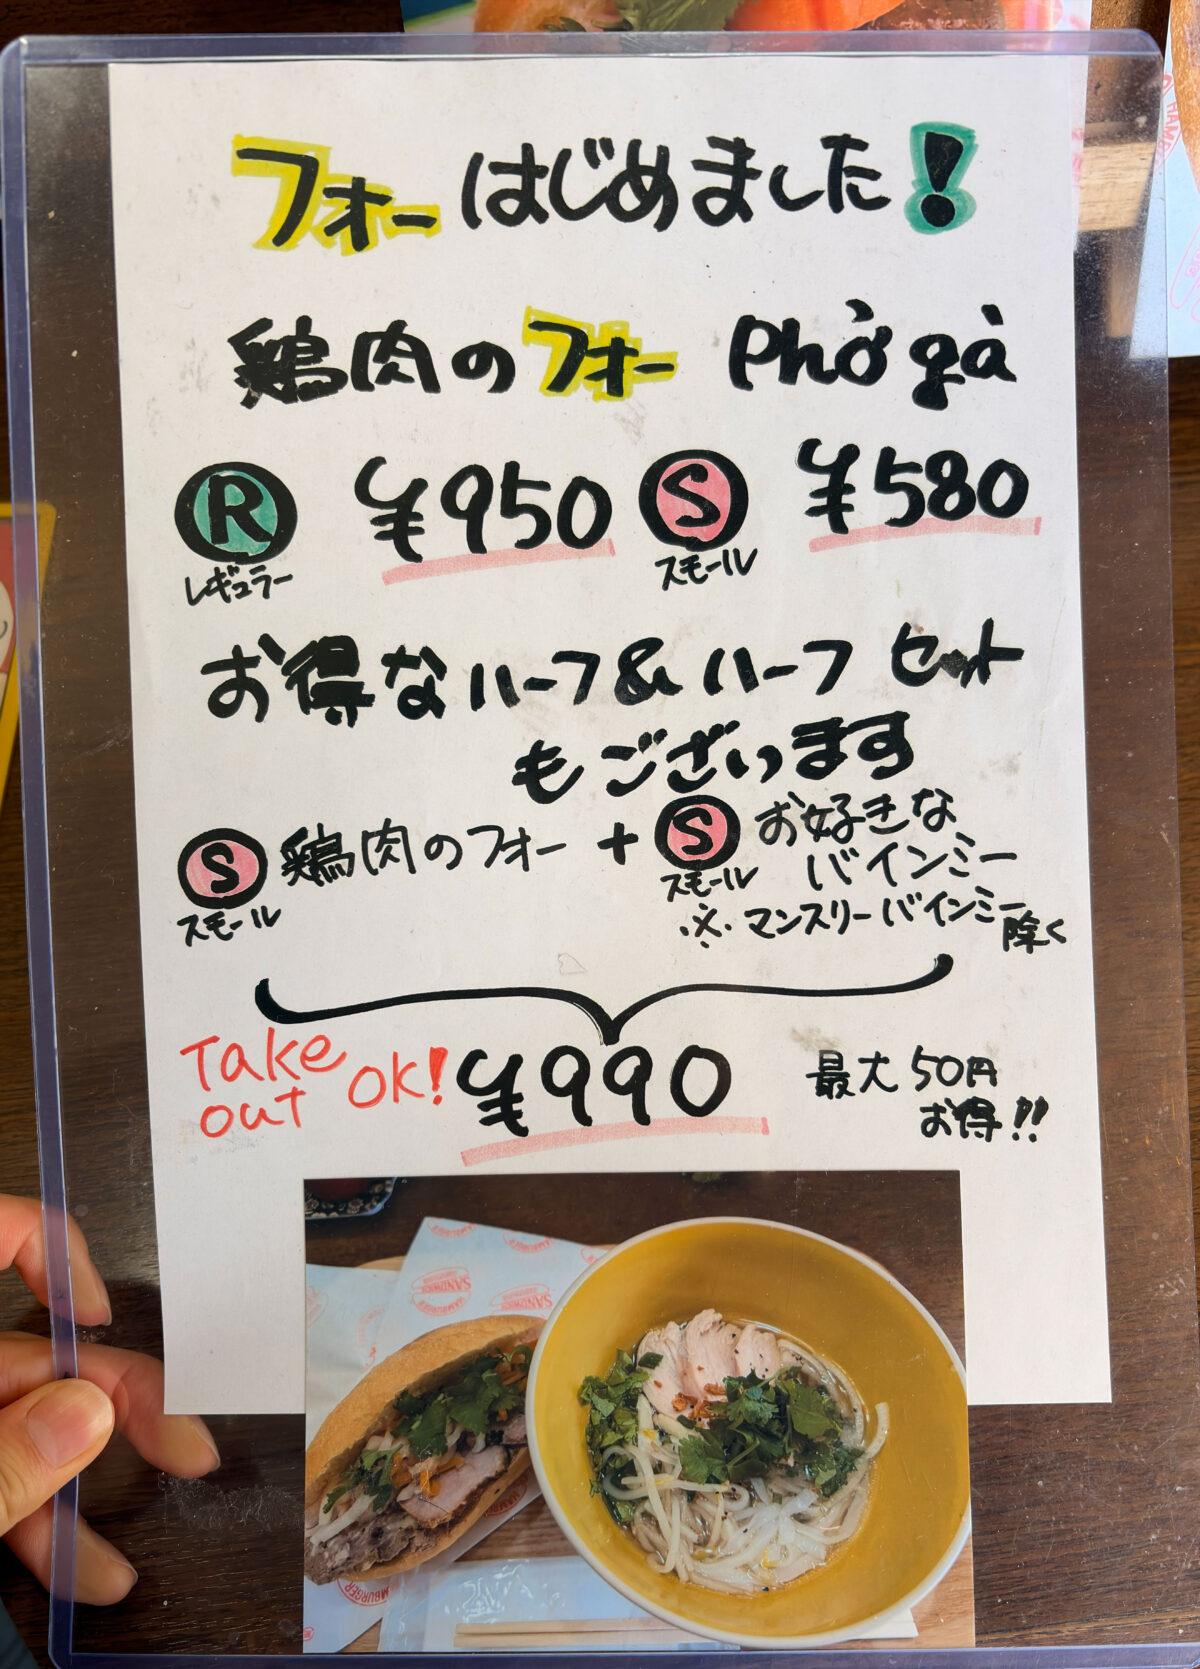 フォーはじめました!
鶏肉のフォー Phở gà
R レギュラー ¥950 S スモール ¥580
お得なハーフ&ハーフ セット
もございます
S スモール 鶏肉のフォー + S スモール お好きな
バインミー
※マンスリーバインミー除く
Take out OK! ¥990 最大50円
お得!!
SANDWICH
HAMBURGER